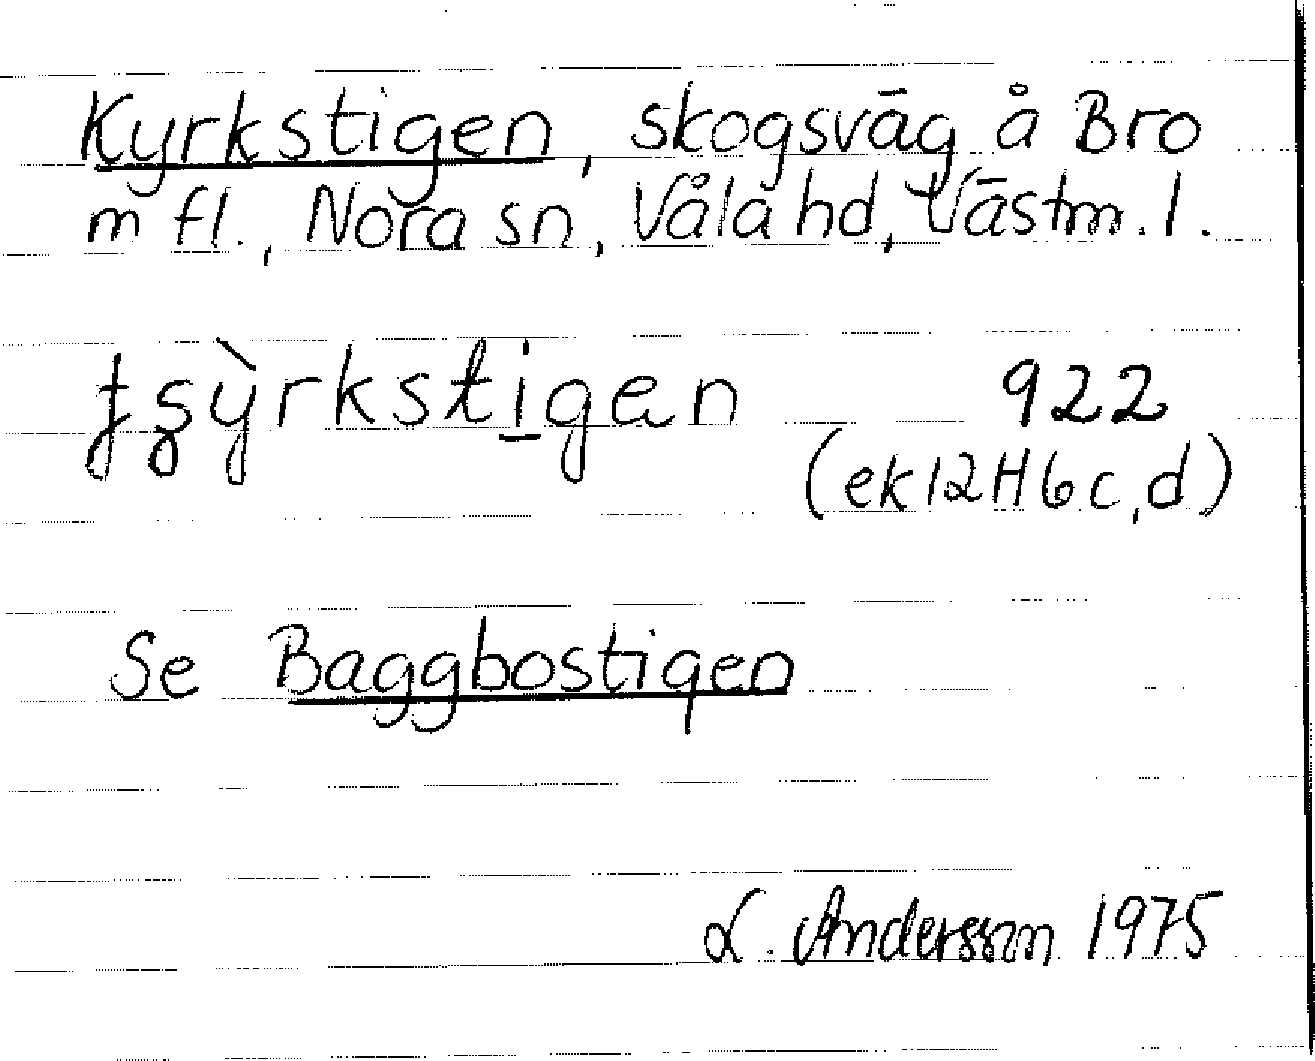 Kyrkstigen, skogsväg å Bro
m fl., Nora sn, Våla hd, Västm. l.
922
(ek 12H6c,d)
Se Baggbostigen
L. Andersson 1975